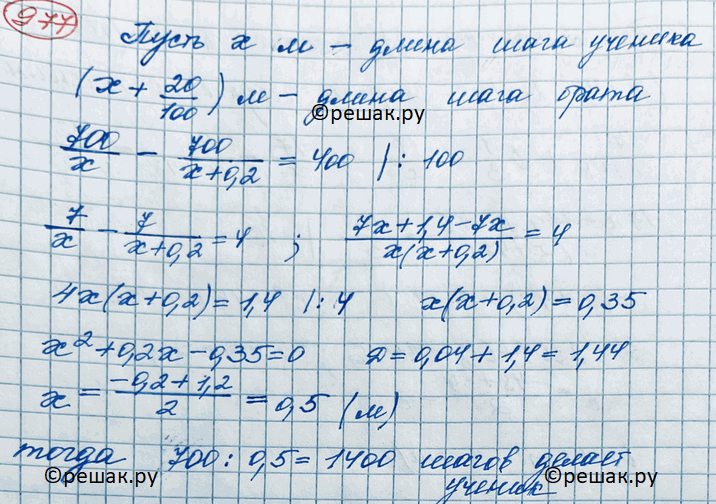 977
Пусть x м – длина шага ученика
(x + 20/100) м – длина шага брата
©решак.ру
700/x - 700/(x+0,2) = 400 | : 100
7/x - 7/(x+0,2) = 4 ; (7x+1,4-7x)/(x(x+0,2)) = 4
4x(x+0,2) = 1,4 | : 4 x(x+0,2) = 0,35
x² + 0,2x - 0,35 = 0 D = 0,04 + 1,4 = 1,44
x = (-0,2 + 1,2)/2 = 0,5 (м)
тогда 700 : 0,5 = 1400 шагов делает
ученик
©решак.ру ©решак.ру